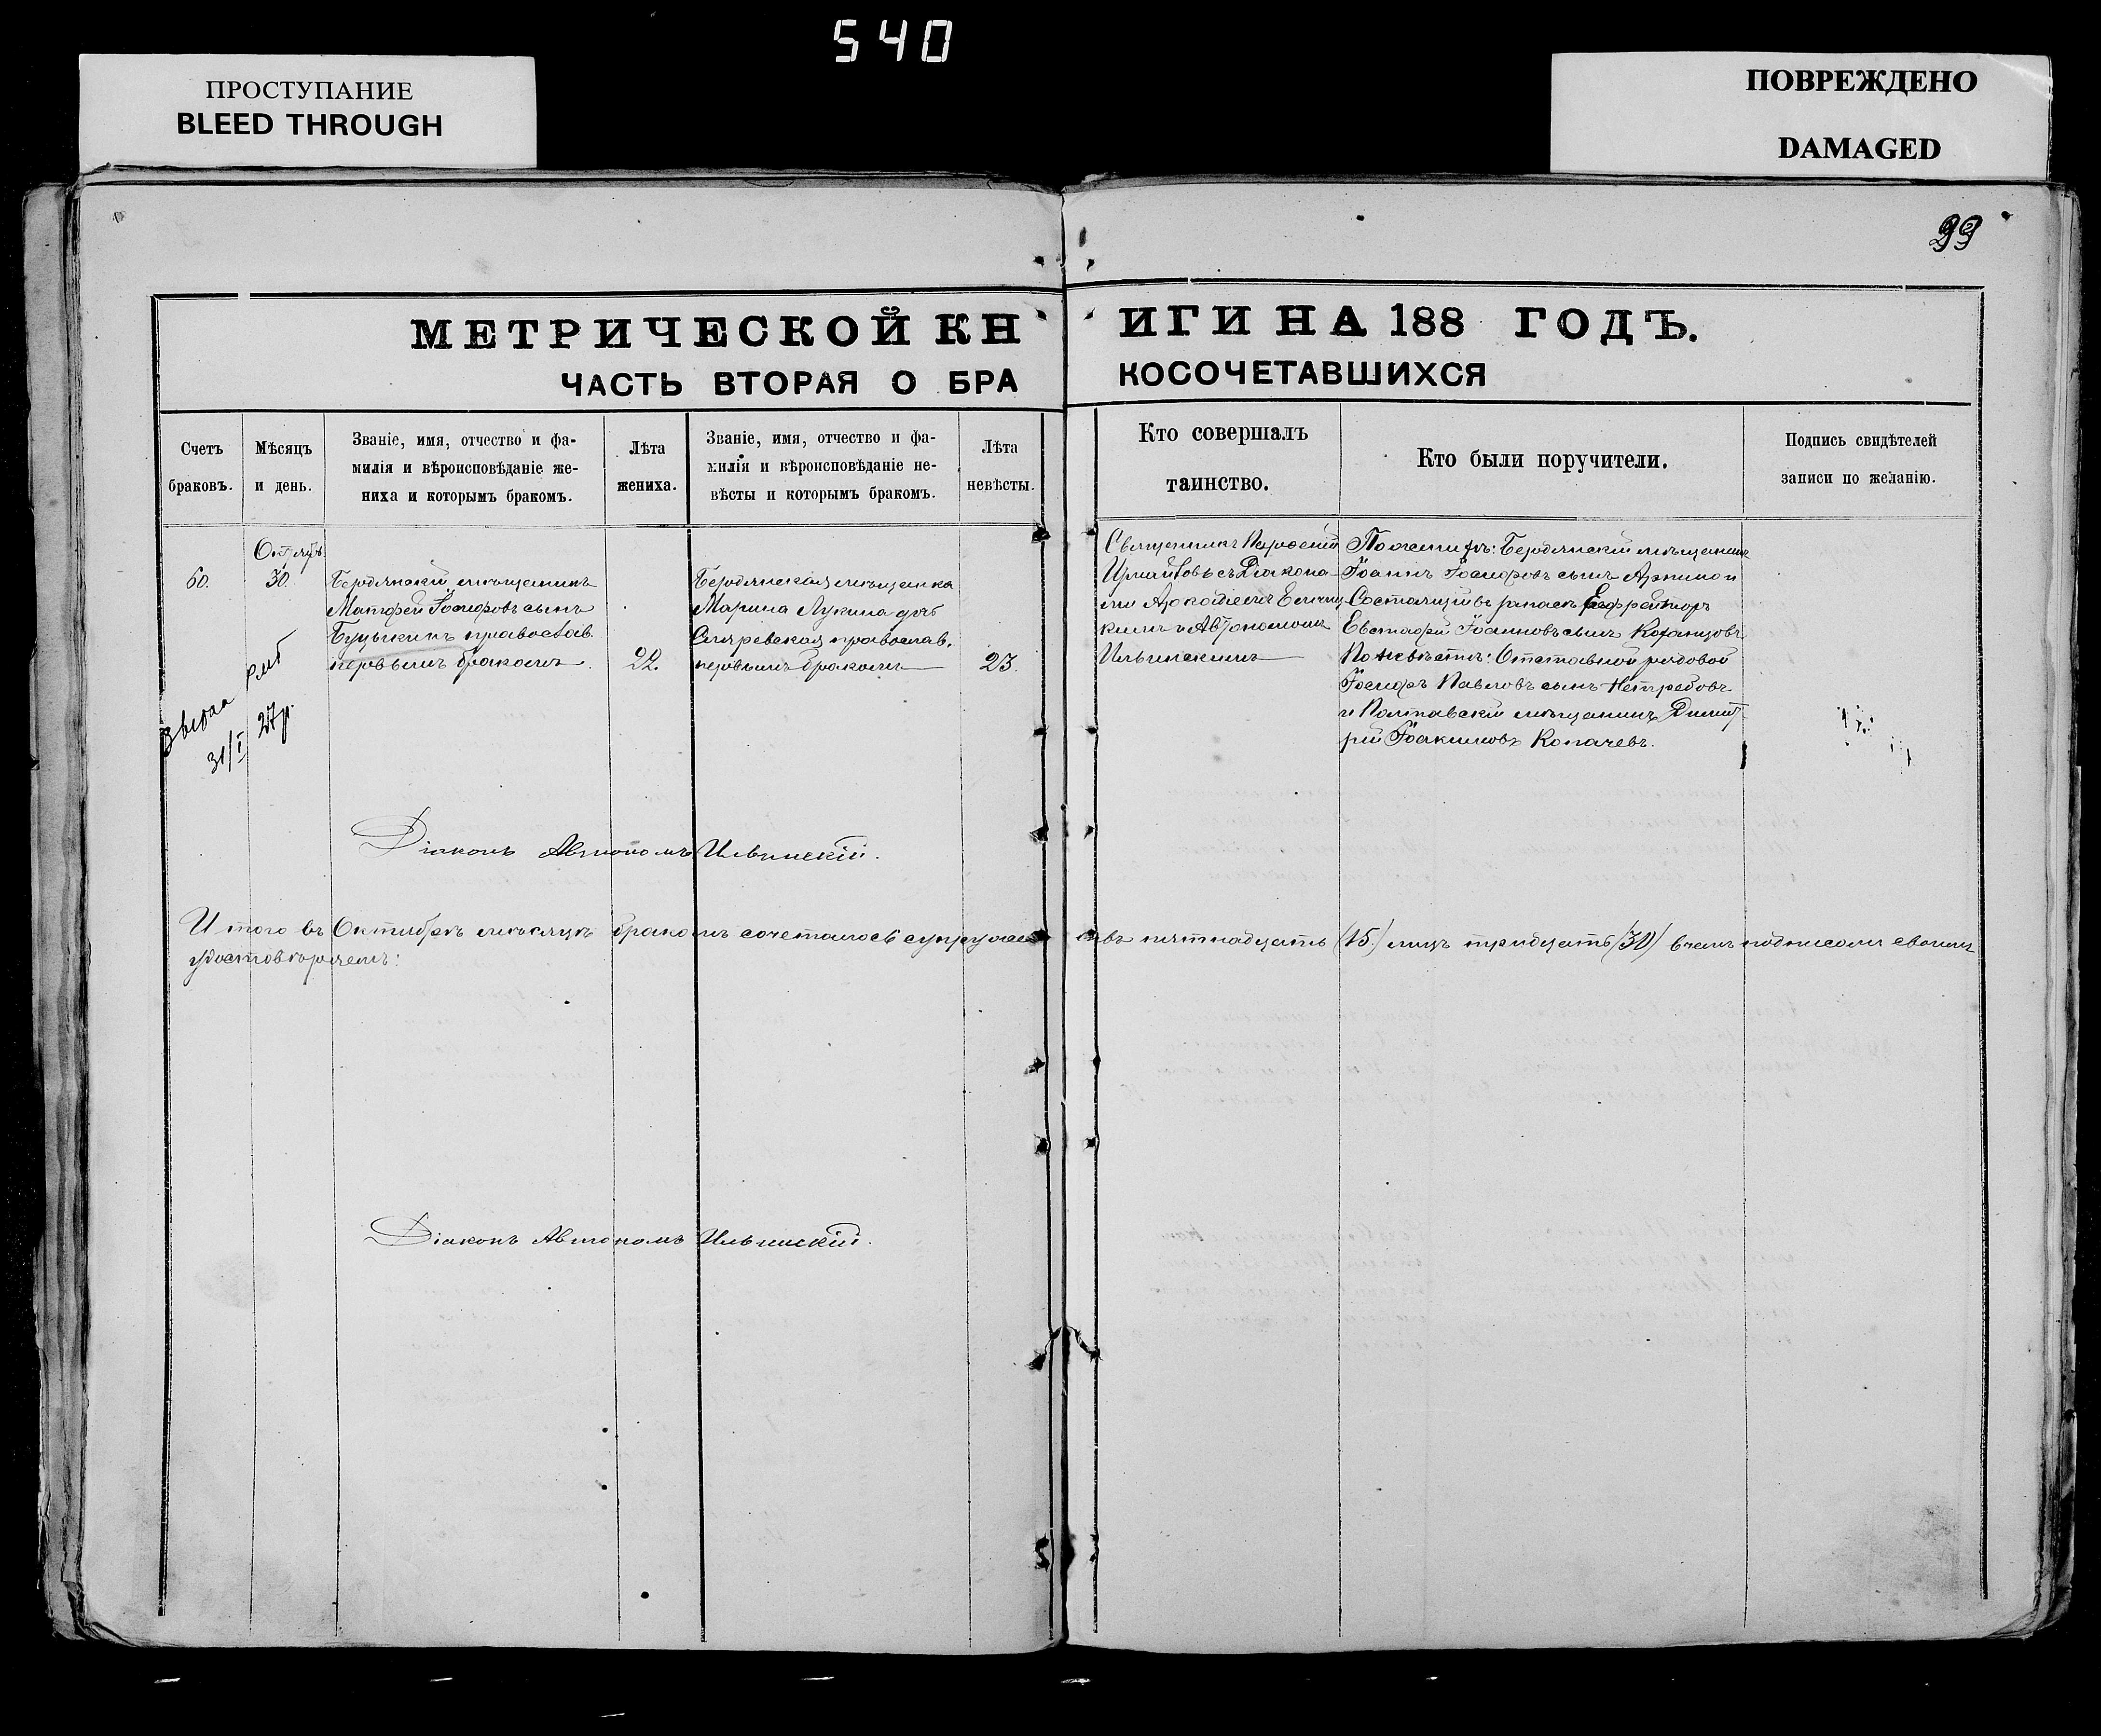 540
ПРОСТУПАНИЕ
BLEED THROUGH
ПОВРЕЖДЕНО
DAMAGED
99
МЕТРИЧЕСКОЙ КНИГИ НА 188 ГОДЪ.
ЧАСТЬ ВТОРАЯ О БРАКОСОЧЕТАВШИХСЯ
Счетъ
браковъ.
Мѣсяцъ
и день.
Званіе, имя, отчество и фа-
милія и вѣроисповѣданіе же-
ниха и которымъ бракомъ.
Лѣта
жениха.
Званіе, имя, отчество и фа-
милія и вѣроисповѣданіе не-
вѣсты и которымъ бракомъ.
Лѣта
невѣсты.
Кто совершалъ
таинство.
Кто были поручители.
Подпись свидѣтелей
записи по желанію.
60.
Октябр.
30.
Бердянскій мѣщанинъ
Матфей Іосифовъ сынъ
православ.
первымъ бракомъ
22.
Бердянская мѣщанка
Марина Лукина дочь
православ.
первымъ бракомъ
23.
Священникъ
съ Діакона-
ми Аркадіемъ
кимъ и Автономомъ
Ильинскимъ
По женихѣ: Бердянскій мѣщанинъ
Іоаннъ Іосифовъ сынъ
Состоящій въ запасѣ Ефрейторъ
Евстафій Іоанновъ сынъ
По невѣстѣ: Отставной рядовой
Іосифъ Павловъ сынъ
и Полтавскій мѣщанинъ Димит-
рій Іоакимовъ Копачевъ.
31/I 27р.
Діаконъ Автономъ Ильинскій.
Итого въ Октябрѣ мѣсяцѣ бракомъ сочеталось супружествъ пятнадцать (15.) лицъ тридцать (30) въ чемъ подписомъ своимъ
удостовѣряемъ:
Діаконъ Автономъ Ильинскій.